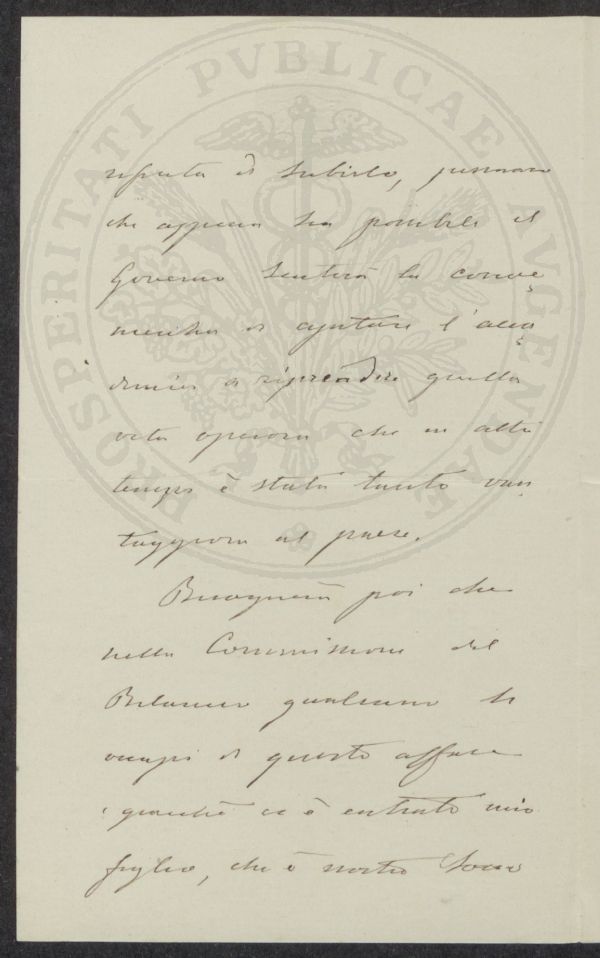 PROSPERITATI PVBLICAE AVGENDAE
rifiuta di subirlo,
che appena sia possibile il
Governo sentirà la conve
nienza di ajutare l'acca
demia a riprendere quella
vita operosa che in altri
tempi è stata tanto van
taggiosa al paese.
Bisognerà poi che
nella Commissione del
Bilancio qualcuno si
occupi di questo affare
e giacchè ci è entrato mio
figlio, che è nostro Socio